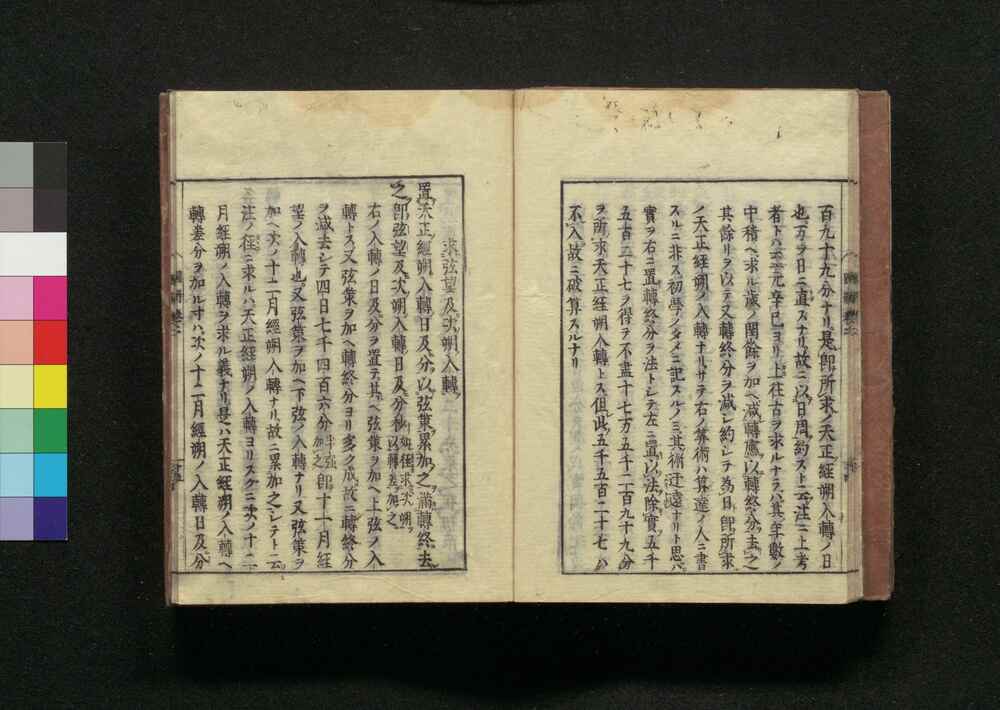 百九十九分ナリ是即所求ノ天正経朔入轉ノ日
也万ヲ日ニ直スナリ故ニ以日周約スト云注ニ上考
者トハ至元辛巳ヨリ上往古ヲ求ルナラハ其年數ノ
中積ヘ求ル歳ノ閏餘ヲ加ヘ減轉應以轉終分去之
其餘リヲ以テ又轉終分ヲ減シ約シテ為日即所求
ノ天正経朔ノ入轉ナリサテ右ノ算術ハ算達ノ人ニ書
スルニ非ス初學ノタメニ記スルノミ其術迂遠ナリト思ハ
實ヲ右ニ置轉終分ヲ法トシテ左ニ置以法除實五千
五百二十七ヲ得ヲ不盡十七万五千二百九十九分
ヲ所求天正経朔入轉トス但此五千五百二十七ハ
不入故ニ破算スルナリ
求弦望及次朔入轉
置天正経朔入轉日及分以弦策累加之滿轉終去
之即弦望及次朔入轉日及分秒如徑求次朔以轉差加之
右ノ入轉ノ日及分ヲ置テ其ヘ弦策ヲ加ヘ上弦ノ入
轉トス又弦策ヲ加ヘ轉終分ヨリ多ク成故ニ轉終分
ヲ減去シテ四日七千四百六分半強加之即十一月経
望ノ入轉也又弦策ヲ加ヘ下弦ノ入轉ナリ又弦策ヲ
加ヘ次ノ十二月経朔入轉ナリ故ニ累加之シテト云
注ノ徑ニ求ルハ天正経朔ノ入轉ヨリスクニ次ノ十二
月経朔ノ入轉ヲ求ル義ナリ是ハ天正経朔ノ入轉ヘ
轉差分ヲ加ル寸ハ次ノ十二月経朔ノ入轉日及分